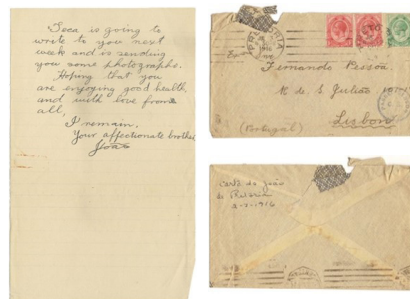 Joca is going to
write to you next
week and is sending
you some photographs.
Hoping that you
are enjoying good health
and with love from
all,
I remain,
Your affectionate brother
João
PRETORIA
1916
Fernando Pessoa
R de S. Julião
Lisbon
(Portugal)
Carta do João
de Pretoria
1916